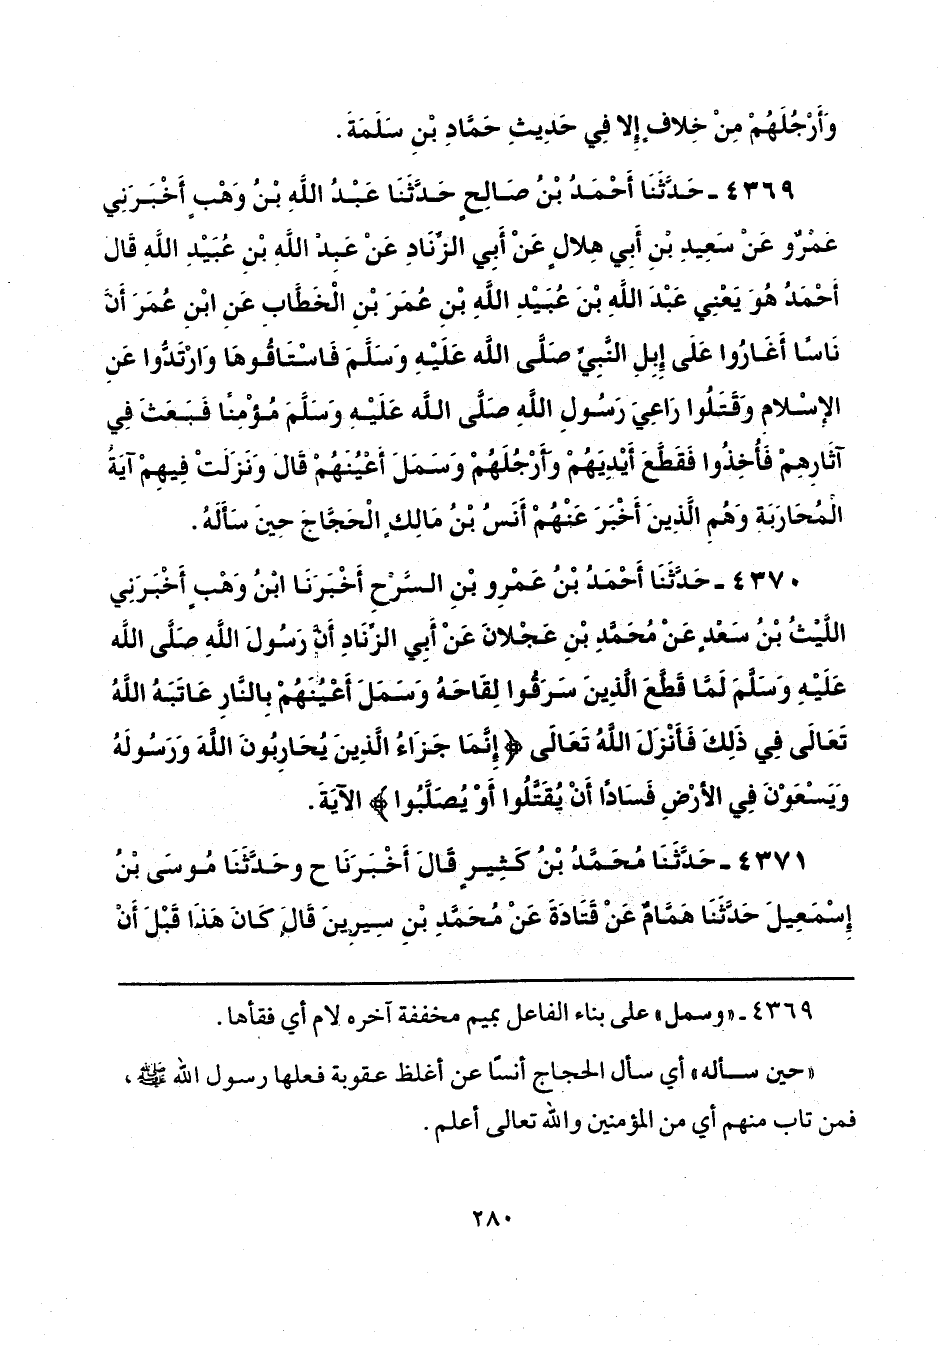 وَأَرْجُلَهُمْ مِنْ خِلافٍ إِلا فِي حَدِيثِ حَمَّادِ بْنِ سَلَمَةَ.
٤٣٦٩ ـ حَدَّثَنَا أَحْمَدُ بْنُ صَالِحٍ حَدَّثَنَا عَبْدُ اللَّهِ بْنُ وَهْبٍ أَخْبَرَنِي
عَمْرٌو عَنْ سَعِيدِ بْنِ أَبِي هِلالٍ عَنْ أَبِي الزِّنَادِ عَنْ عَبدْ اللَّهِ بْنِ عُبَيْدِ اللَّهِ قَالَ
أَحْمَدُ هُوَ يَعْنِي عَبْدَ اللَّهِ بْنَ عُبَيْدِ اللَّهِ بْنِ عُمَرَ بْنِ الْخَطَّابِ عَنِ ابْنِ عُمَرَ أَنَّ
نَاسًا أَغَارُوا عَلَى إِبِلِ النَّبِيِّ صَلَّى اللَّه عَلَيْهِ وَسَلَّمَ فَاسْتَاقُوهَا وَارْتَدُّوا عَنِ
الإِسْلامِ وَقَتَلُوا رَاعِيَ رَسُولِ اللَّهِ صَلَّى اللَّه عَلَيْهِ وَسَلَّمَ مُؤْمِنًا فَبَعَثَ فِي
آثَارِهِمْ فَأُخِذُوا فَقَطَّعَ أَيْدِيَهُمْ وَأَرْجُلَهُمْ وَسَمَلَ أَعْيُنَهُمْ قَالَ وَنَزَلَتْ فِيهِمْ آيَةُ
الْمُحَارَبَةِ وَهُمِ الَّذِينَ أَخْبَرَ عَنْهُمْ أَنَسُ بْنُ مَالِكٍ الْحَجَّاجَ حِينَ سَأَلَهُ.
٤٣٧٠ ـ حَدَّثَنَا أَحْمَدُ بْنُ عَمْرِو بْنِ السَّرْحِ أَخْبَرَنَا ابْنُ وَهْبٍ أَخْبَرَنِي
اللَّيْثُ بْنُ سَعْدٍ عَنْ مُحَمَّدِ بْنِ عَجْلانَ عَنْ أَبِي الزِّنَادِ أَنَّ رَسُولَ اللَّهِ صَلَّى اللَّه
عَلَيْهِ وَسَلَّمَ لَمَّا قَطَّعَ الَّذِينَ سَرَقُوا لِقَاحَهُ وَسَمَلَ أَعْيُنَهُمْ بِالنَّارِ عَاتَبَهُ اللَّهُ
تَعَالَى فِي ذَلِكَ فَأَنْزَلَ اللَّهُ تَعَالَى ﴿إِنَّمَا جَزَاءُ الَّذِينَ يُحَارِبُونَ اللَّهَ وَرَسُولَهُ
وَيَسْعَوْنَ فِي الأَرْضِ فَسَادًا أَنْ يُقَتَّلُوا أَوْ يُصَلَّبُوا﴾ الآيَةَ.
٤٣٧١ ـ حَدَّثَنَا مُحَمَّدُ بْنُ كَثِيرٍ قَالَ أَخْبَرَنَا ح وحَدَّثَنَا مُوسَى بْنُ
إِسْمَعِيلَ حَدَّثَنَا هَمَّامٌ عَنْ قَتَادَةَ عَنْ مُحَمَّدِ بْنِ سِيرِينَ قَالَ كَانَ هَذَا قَبْلَ أَنْ
٤٣٦٩ ـ «وسمل» على بناء الفاعل بميم مخففة آخره لام أي فقأها.
«حين سأله» أي سأل الحجاج أنسًا عن أغلظ عقوبة فعلها رسول الله ﷺ،
فمن تاب منهم أي من المؤمنين والله تعالى أعلم.
٢٨٠